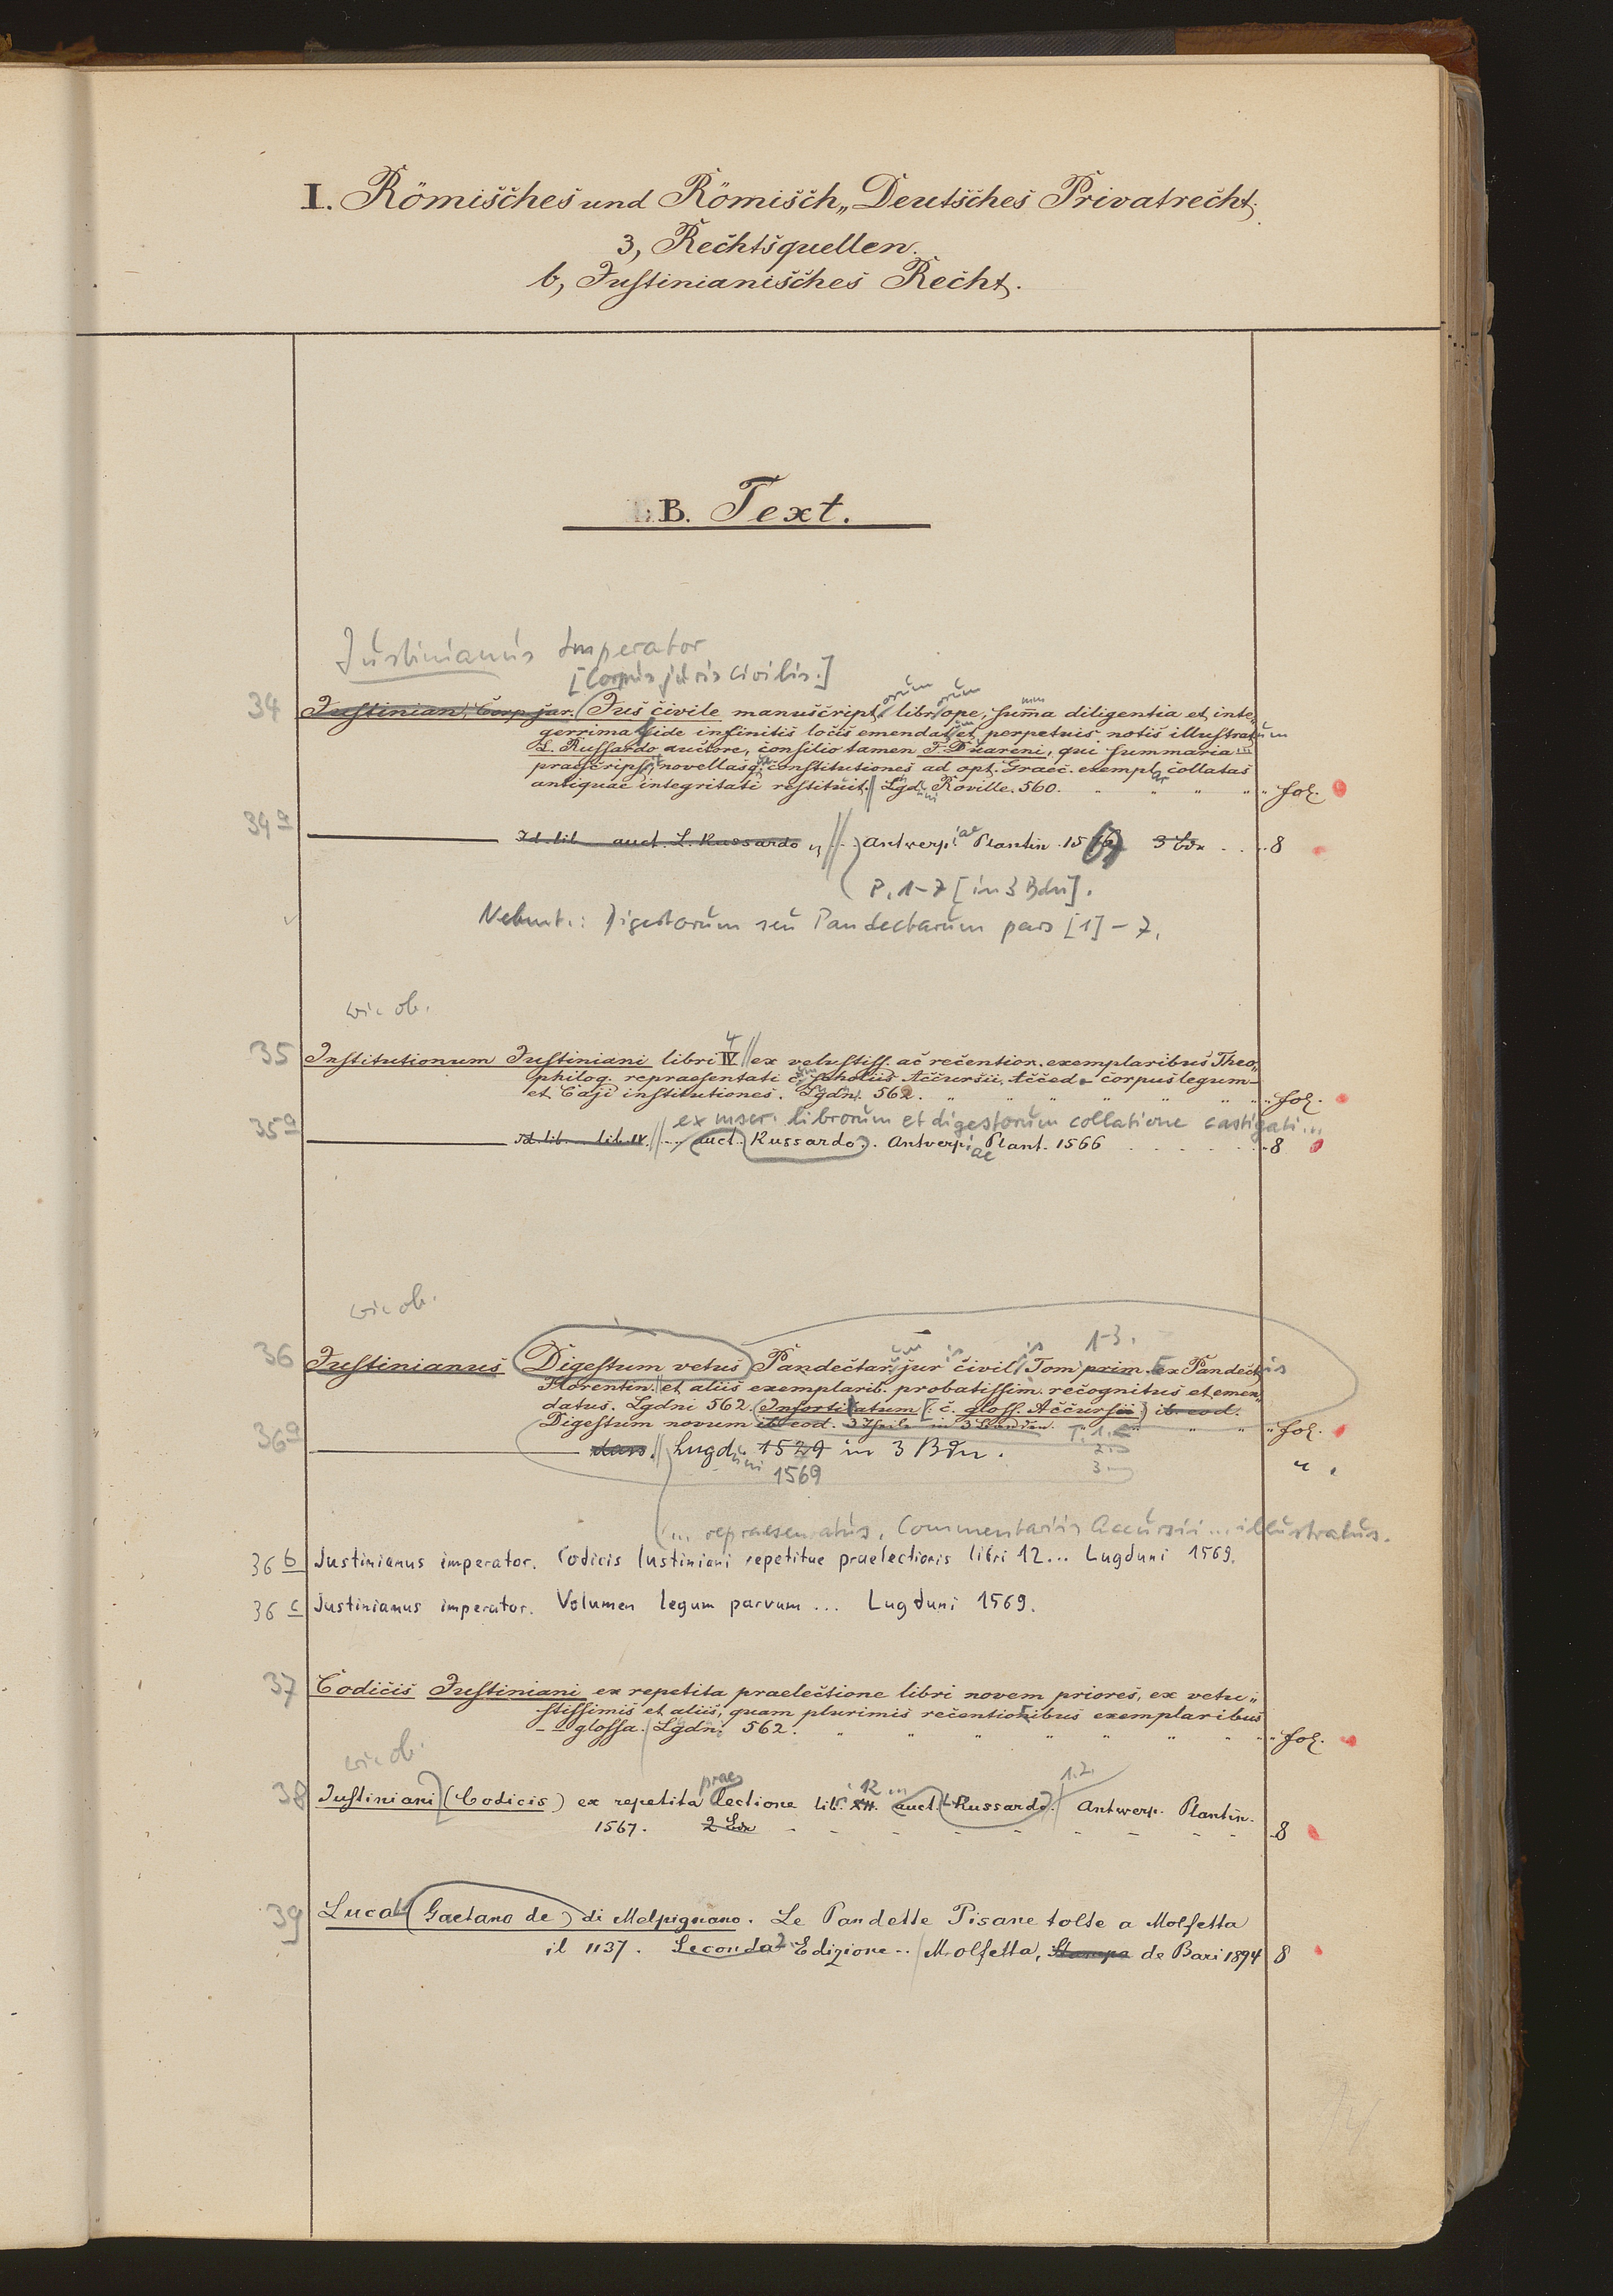 I. Römisches und Römisch„Deutsches Privatrecht.
3, Rechtsquellen.
b, Justinianisches Recht.
B. Text.
Justinianus Imperator
[Corpus juris civilis.]
34 Justinian, Corp. jur. (Jus civile manuscriptorum librorum ope, summa diligentia et inte„
gerrima fide infinitis locis emendatum et perpetuis notis illustratum
L. Russardo auctore, consilio tamen F. Duareni, qui summaria ...
praescripsit, novellasq. constitutiones ad opt. Graec. exempl. collatas
antiquae integritati restituit. Lgduni Roville. 560. " " " " " fol.
34a Id. lib. auct. L. Russardo Antwerpiae Plantin. 1567 3 Bde . . . 8
P. 1-7 [in 3 Bdn].
Nebent.: Digestorum seu Pandectarum pars [1] - 7.
wie ob.
35 Institutionum Justiniani libri IV 4 ex vetustiss. ac recentior. exemplaribus Theo„
philog. repraesentati c. scholiis Accursii. Acced. corpus legum
et Caji institutiones. Lgdni. 562. " " " " " " " fol.
ex mscr. librorum et digestorum collatione castigati...
35a Id. lib. lib. IV. ... auct. Russardo. Antwerpiae Plant. 1566 . . . . . 8
wie ob.
1-3.
36 Justinianus (Digestum vetus) Pandectarum juris civilis Tom prim. ex Pandectis
Florentin. et aliis exemplarib. probatissim. recognitus et emen„
datus. Lgdni 562. (Infortiatum [: c. gloss. Accursii :] ib. eod.
Digestum novum ib. eod. 3 Theile in 3 Bänden. T. 1. " " fol.
36a dass. Lugduni 1529 in 3 Bdn. 2. "
1569 3.
(... repraesentatus, Commentariis Accursii ... illustratus.
36b Justinianus imperator. Codicis Iustiniani repetitae praelectionis libri 12... Lugduni 1569.
36c Justinianus imperator. Volumen legum parvum ... Lugduni 1569.
37 Codicis Justiniani ex repetita praelectione libri novem priores, ex vetu„
stissimis et aliis, quam plurimis recentioribus exemplaribus
-- glossa. Lgdni 562. " " " " " " " fol.
wie ob.
38 Justiniani (Codicis) ex repetita praelectione lib. XII. 12 ... auct. L. Russardo. 1.2. Antwerp. Plantin.
1567. 2 Bde - - - - - - - - 8
39 Luca (Gaetano de) di Melpignano. Le Pandette Pisane tolte a Molfetta
il 1137. Seconda 2. Edizione .. Molfetta, Stampa de Bari 1894 8